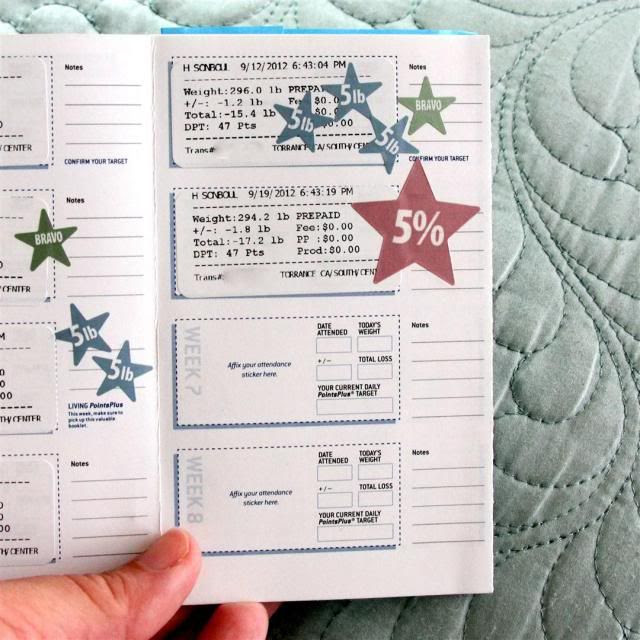 Notes
/CENTER
CONFIRM YOUR TARGET
BRAVO
5lb
5lb
LIVING PointsPlus
This week, make sure to
pick up this valuable
booklet.
TH/CENTER
Notes
TH/CENTER
H SONBOUL 9/12/2012 6:43:04 PM
Weight:296.0 lb PREPA
+/-: -1.2 lb Fe $0.0
Total:-15.4 lb $0.
DPT: 47 Pts 0.00
Trans#: TORRANCE CA/SOUTH/CE
5lb
5lb
5lb
Notes
BRAVO
CONFIRM YOUR TARGET
H SONBOUL 9/19/2012 6:43:19 PM
Weight:294.2 lb PREPAID
+/-: -1.8 lb Fee:$0.00
Total:-17.2 lb PP :$0.00
DPT: 47 Pts Prod:$0.00
Trans#: TORRANCE CA/SOUTH/CENT
5%
WEEK 7
Affix your attendance
sticker here.
DATE ATTENDED
TODAY'S WEIGHT
+/–
TOTAL LOSS
YOUR CURRENT DAILY
PointsPlus® TARGET
Notes
WEEK 8
Affix your attendance
sticker here.
DATE ATTENDED
TODAY'S WEIGHT
+/–
TOTAL LOSS
YOUR CURRENT DAILY
PointsPlus® TARGET
Notes